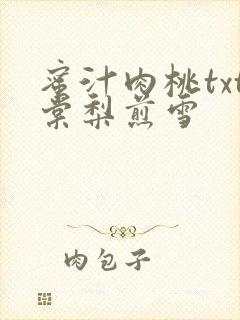 蜜汁肉桃txt
棠梨煎雪
肉包子